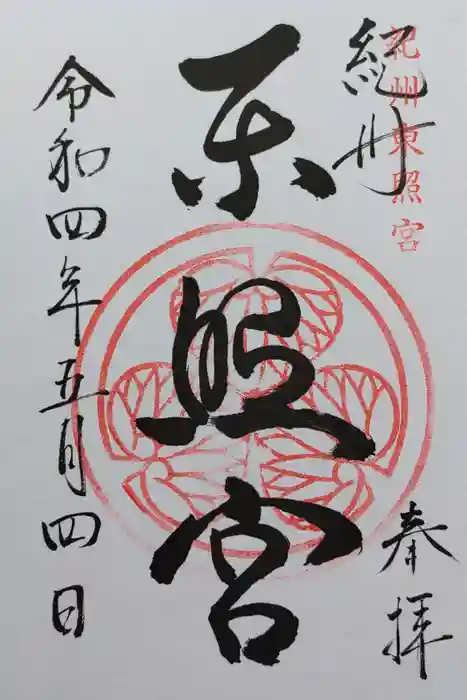 紀州
紀州東照宮
奉拝
东照宮
令和四年五月四日